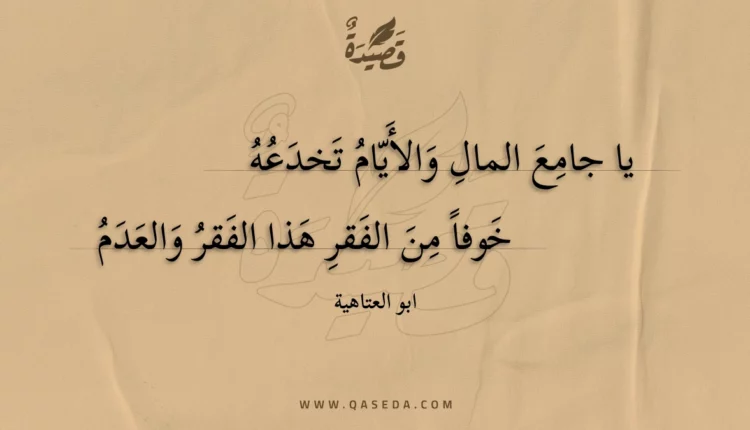 قَصِيدَةٌ
يا جامِعَ المالِ وَالأَيّامُ تَخدَعُهُ
خَوفاً مِنَ الفَقرِ هَذا الفَقرُ وَالعَدَمُ
ابو العتاهية
WWW.QASEDA.COM